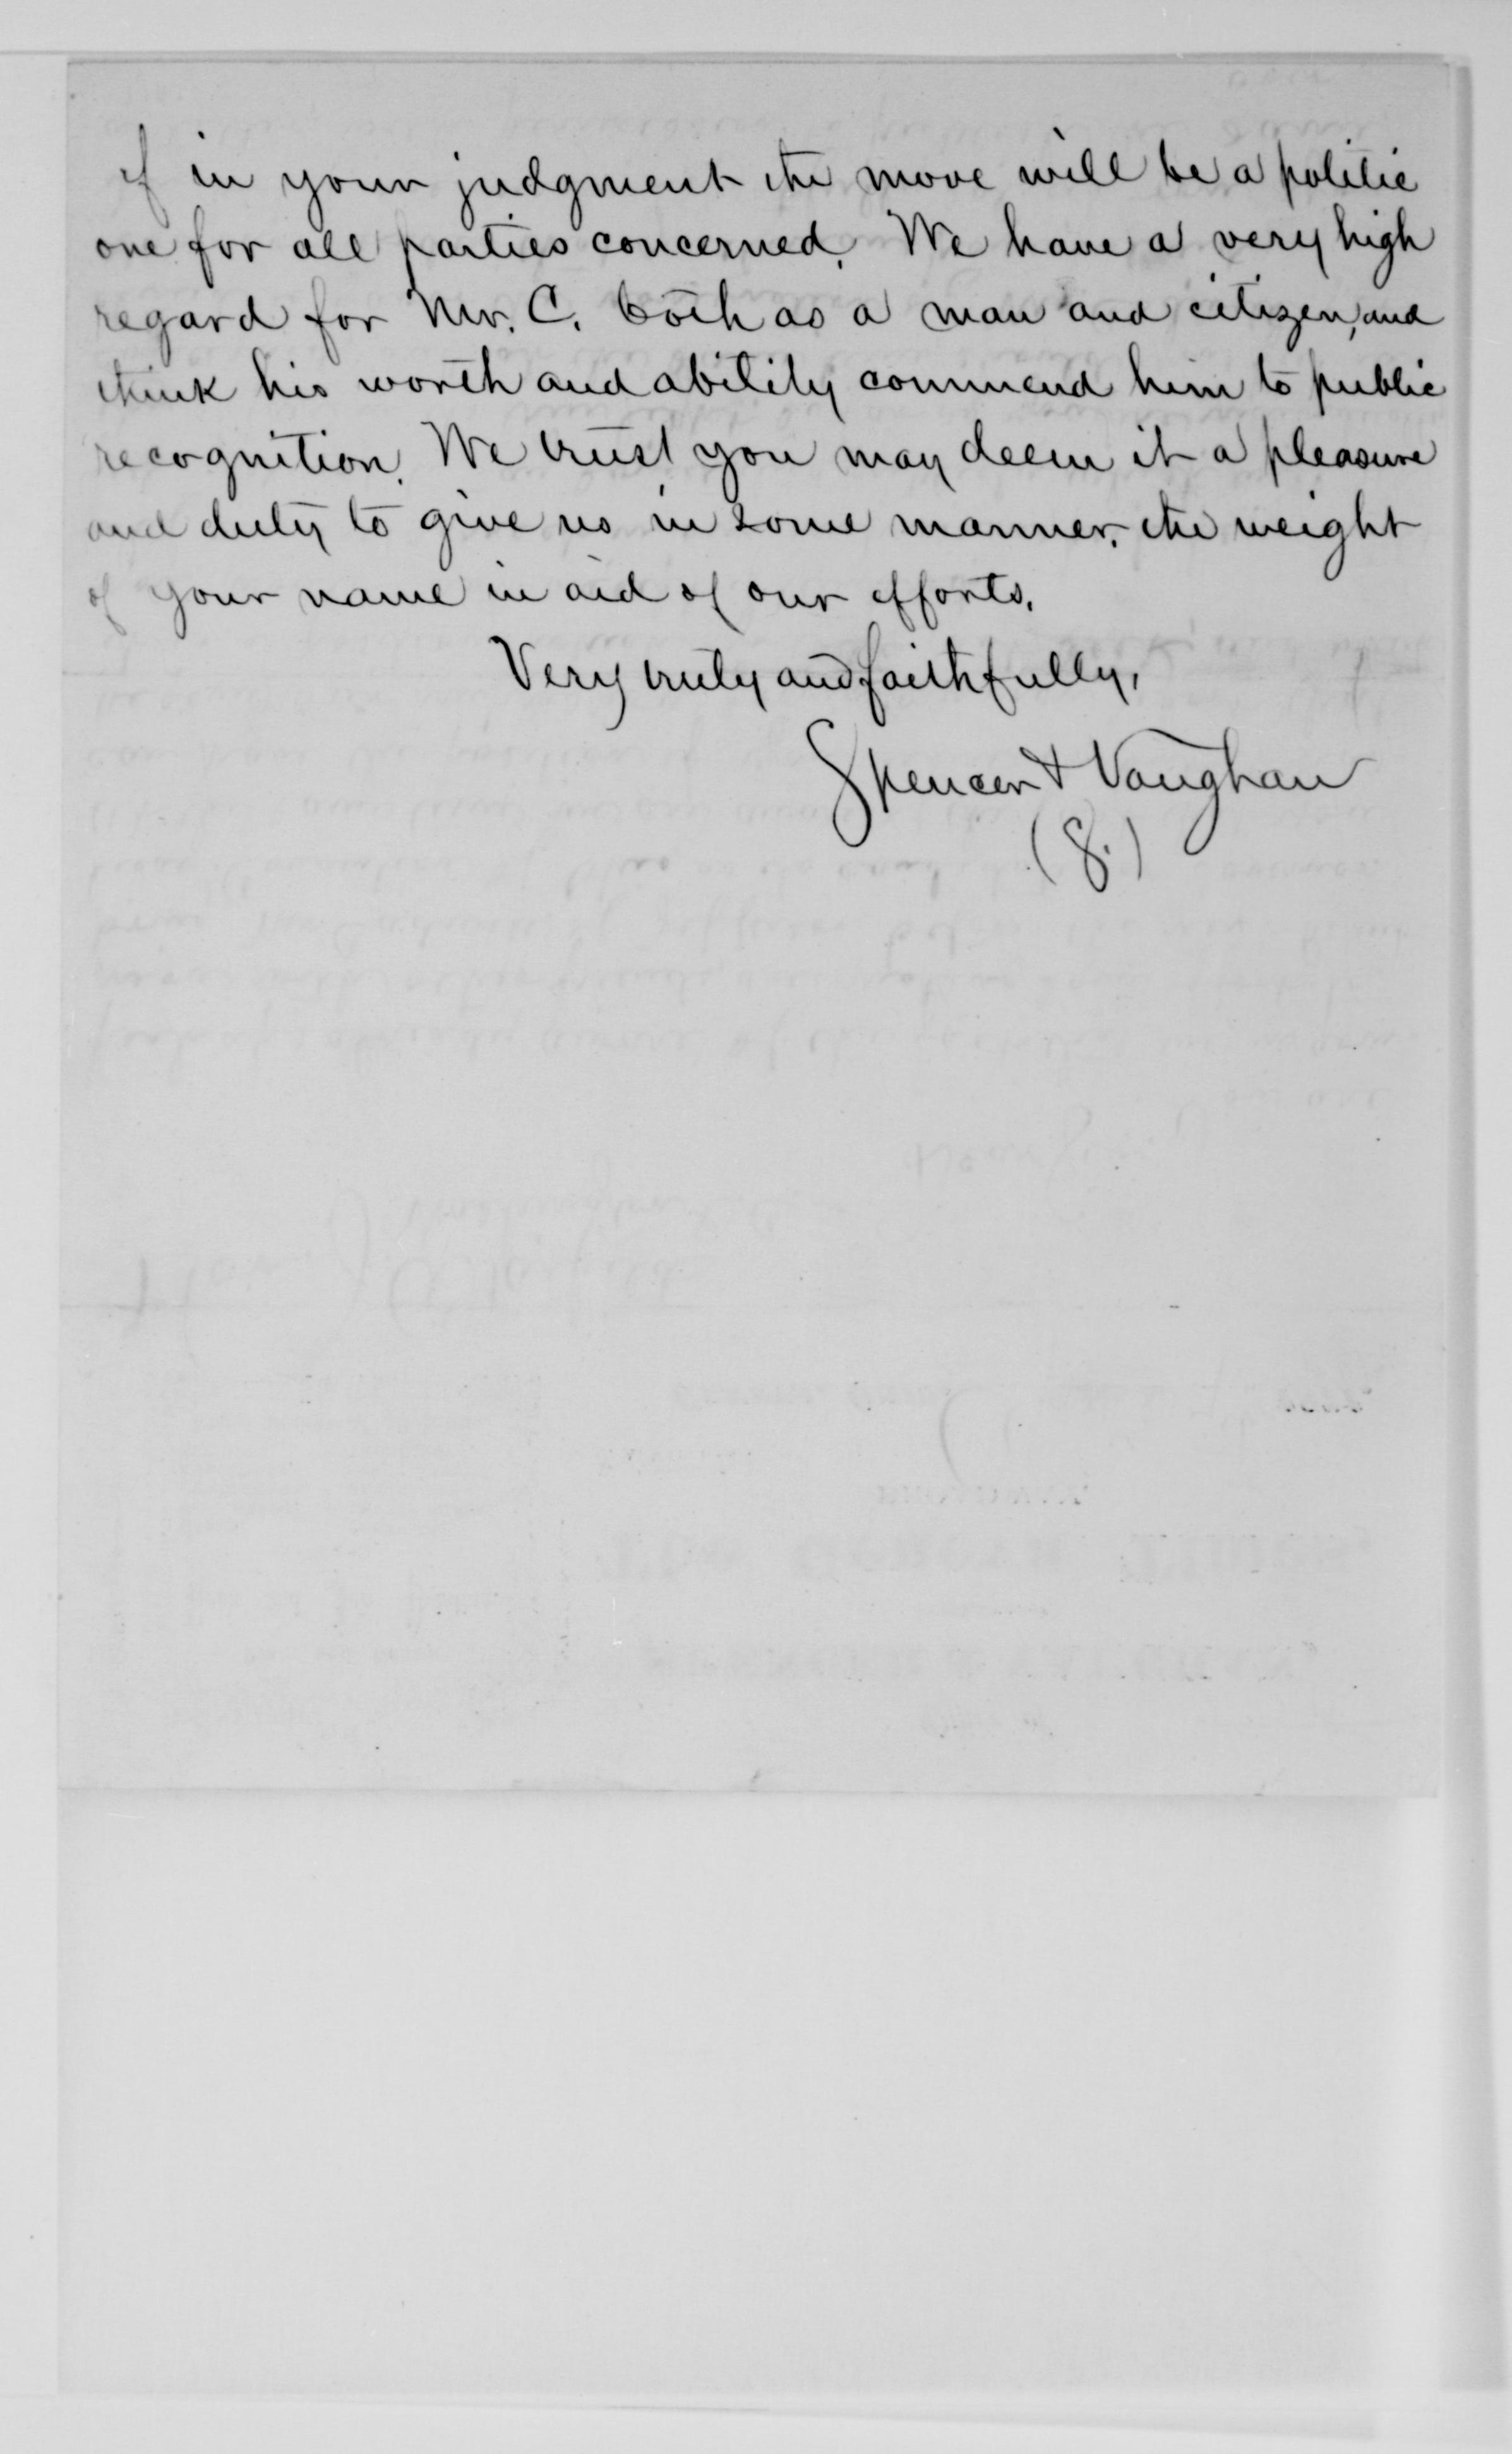 if in your judgment the move will be a politic
one for all parties concerned. We have a very high
regard for Mr. C. both as a man and citizen, and
think his worth and ability commend him to public
recognition. We trust you may deem it a pleasure
and duty to give us in some manner, the weight
of your name in aid of our efforts.
Very truly and faithfully,
Spencer & Vaughan
(S.)